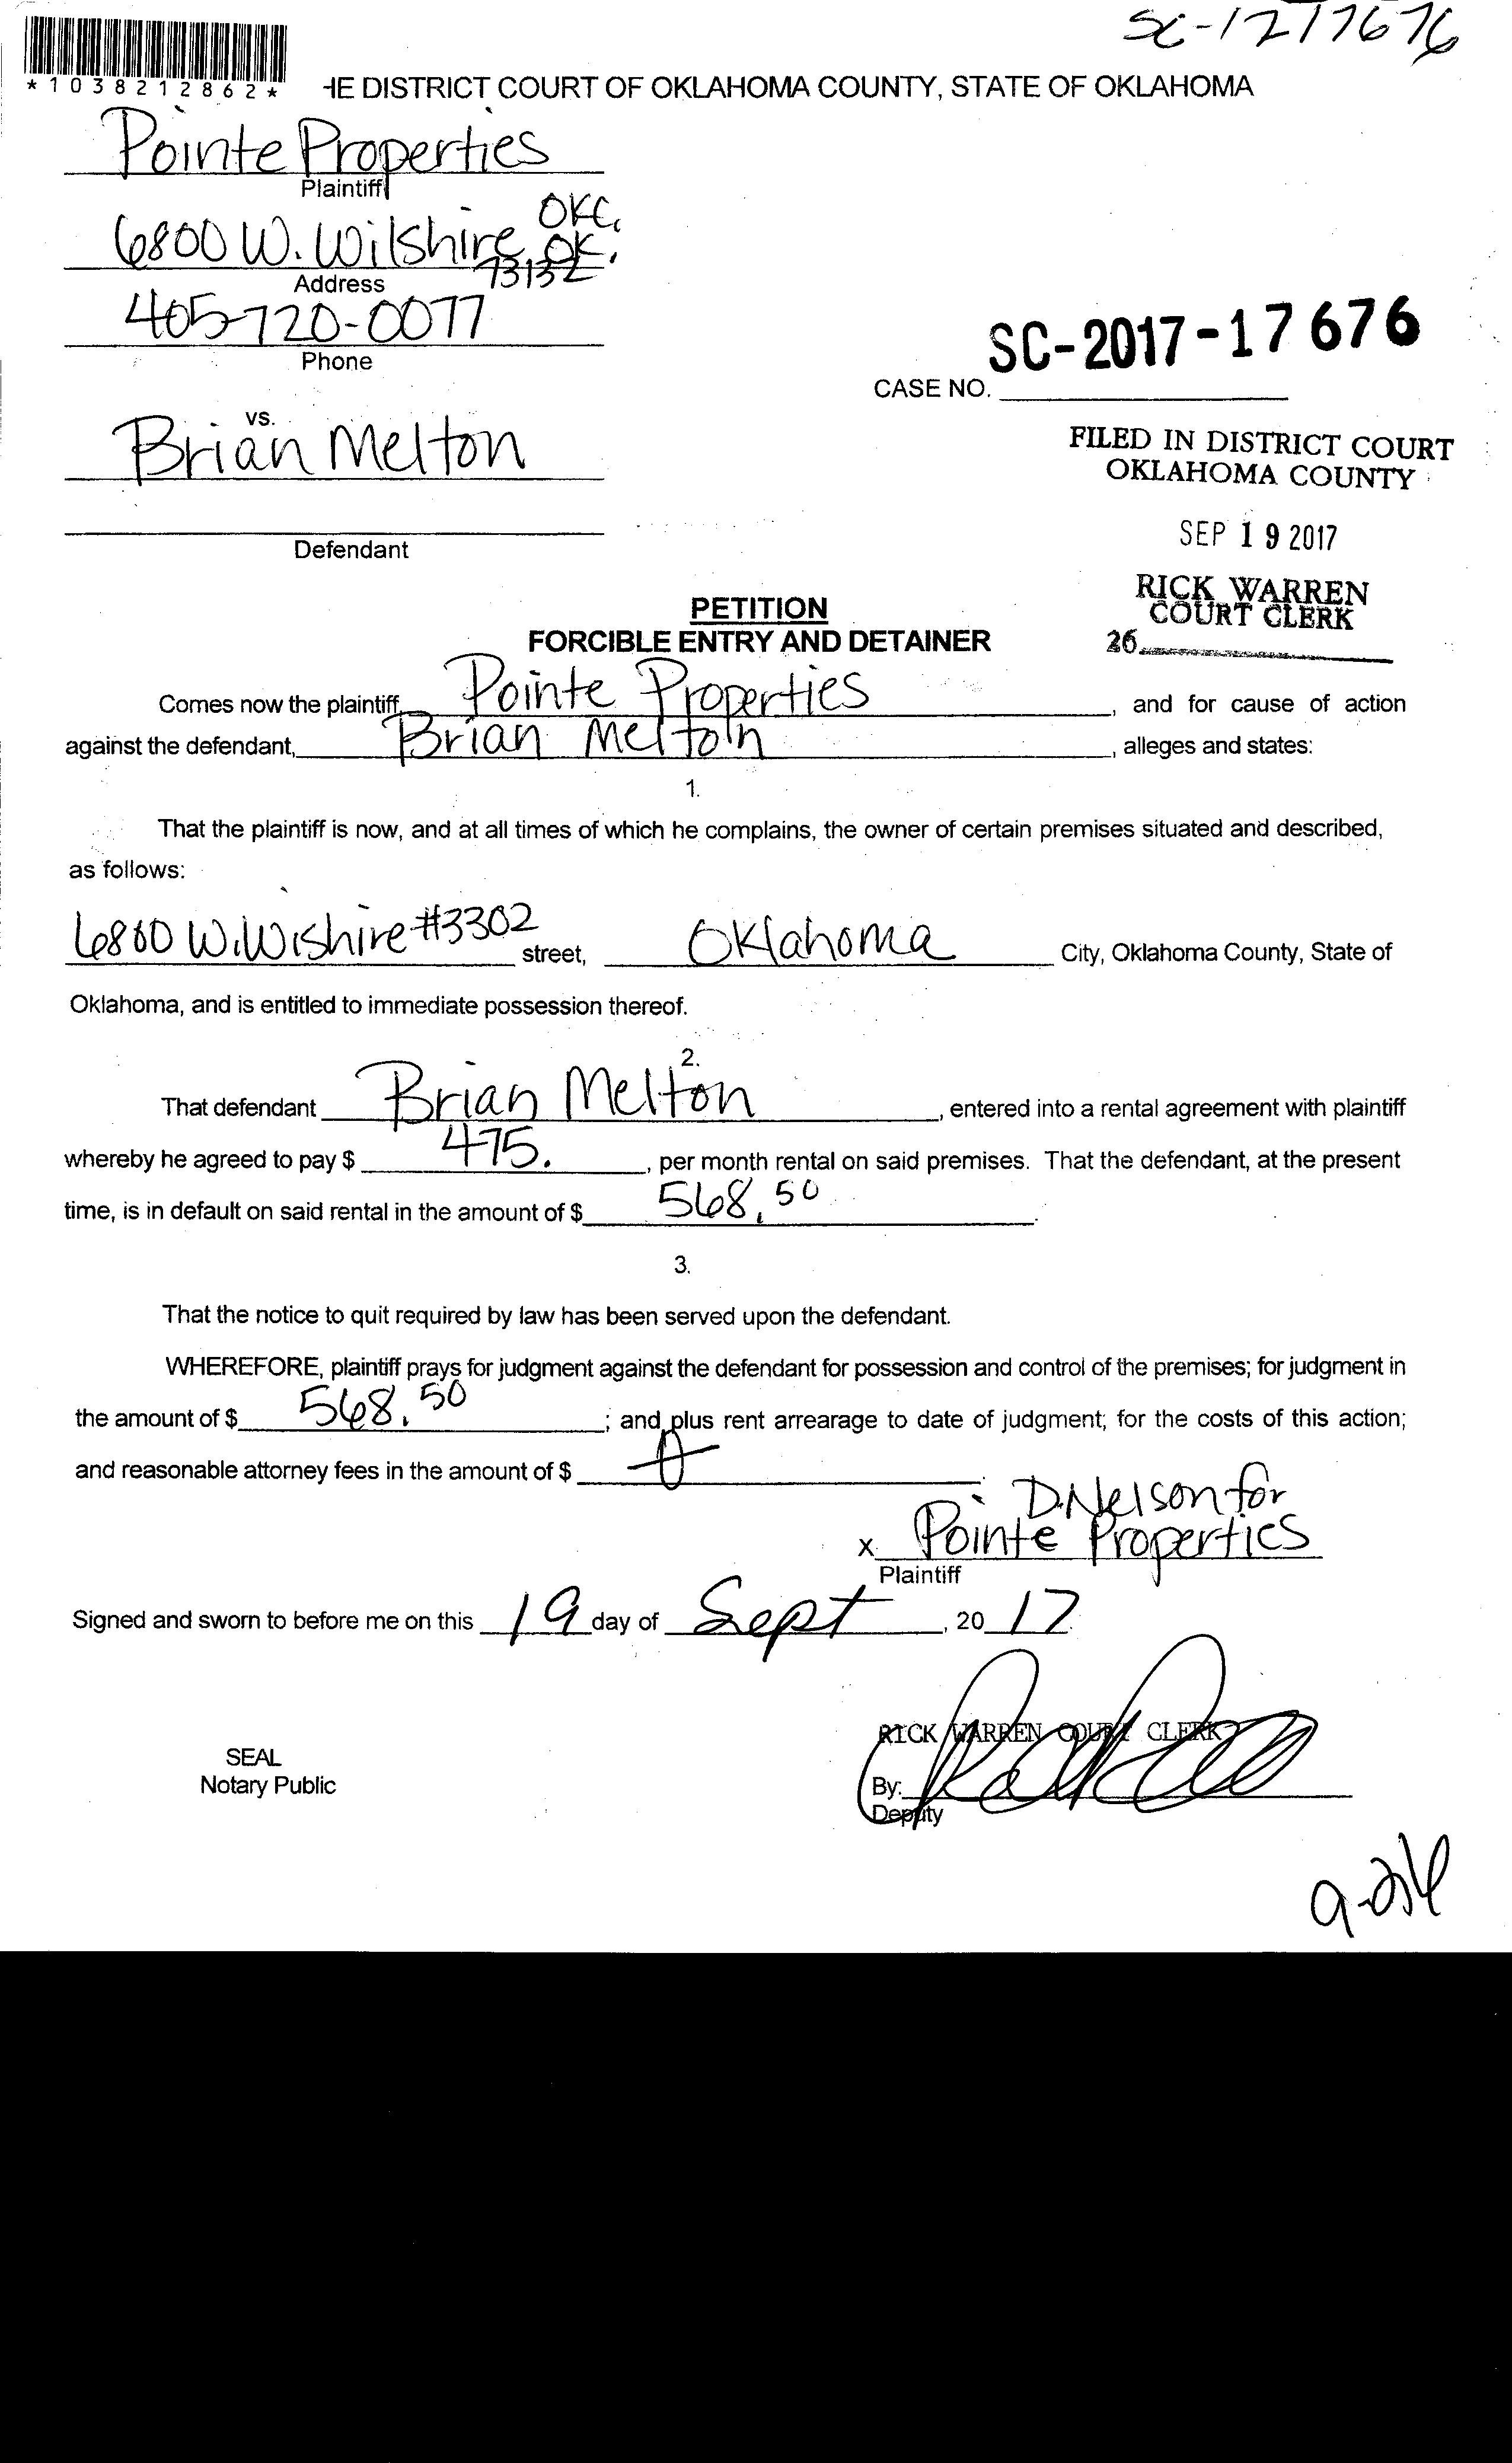 SC-1717676
*1038212862*
HE DISTRICT COURT OF OKLAHOMA COUNTY, STATE OF OKLAHOMA
Pointe Properties
Plaintiff
6800 W. Wilshire, OKC, OK. 73132
Address
405-720-0077
Phone
SC-2017-17676
CASE NO.
vs.
Brian Melton
Defendant
FILED IN DISTRICT COURT
OKLAHOMA COUNTY
SEP 19 2017
RICK WARREN
COURT CLERK
26
PETITION
FORCIBLE ENTRY AND DETAINER
Comes now the plaintiff, Pointe Properties, and for cause of action
against the defendant, Brian Melton, alleges and states:
1.
That the plaintiff is now, and at all times of which he complains, the owner of certain premises situated and described,
as follows:
6800 W. Wishire #3302 street, Oklahoma City, Oklahoma County, State of
Oklahoma, and is entitled to immediate possession thereof.
2.
That defendant Brian Melton, entered into a rental agreement with plaintiff
whereby he agreed to pay $ 475., per month rental on said premises. That the defendant, at the present
time, is in default on said rental in the amount of $ 568.50.
3.
That the notice to quit required by law has been served upon the defendant.
WHEREFORE, plaintiff prays for judgment against the defendant for possession and control of the premises; for judgment in
the amount of $ 568.50; and plus rent arrearage to date of judgment; for the costs of this action;
and reasonable attorney fees in the amount of $
D. Nelson for
x Pointe Properties
Plaintiff
Signed and sworn to before me on this 19 day of Sept, 20 17
RICK WARREN COURT CLERK
SEAL
Notary Public
By:
Deputy
9-26